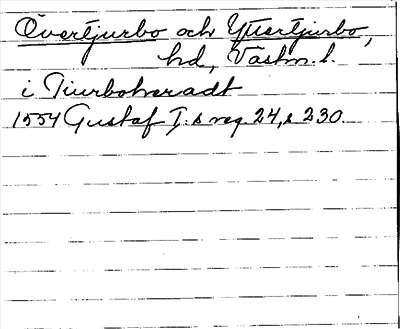 Övertjurbo och Yttertjurbo,
hd, Västm. l.
i Tiurboheradt
1554 Gustaf I:s reg. 24, s 230.